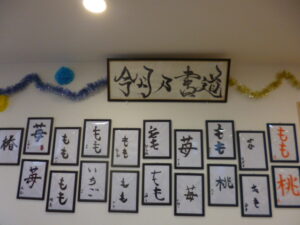 今月乃書道
椿
苺
もも
もも
もも
苺
もも
もも
もも
苺
もも
いちご
もも
もも
苺
桃
もも
もも